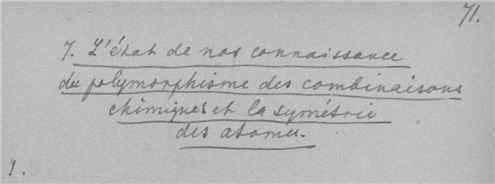 71.
7. L'état de nos connaissance
du polymorphisme des combinaisons
chimiques et la symétrie
des atomes.
1.